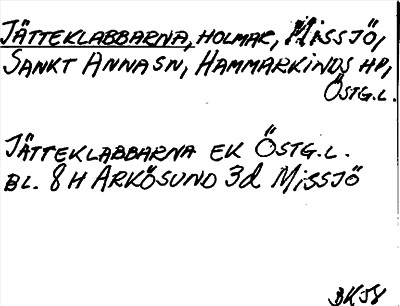 JÄTTEKLABBARNA, HOLMAR, MISSJÖ,
SANKT ANNA SN, HAMMARKINDS HD,
ÖSTG.L.
JÄTTEKLABBARNA EK ÖSTG.L.
BL. 8H ARKÖSUND 3d MISSJÖ